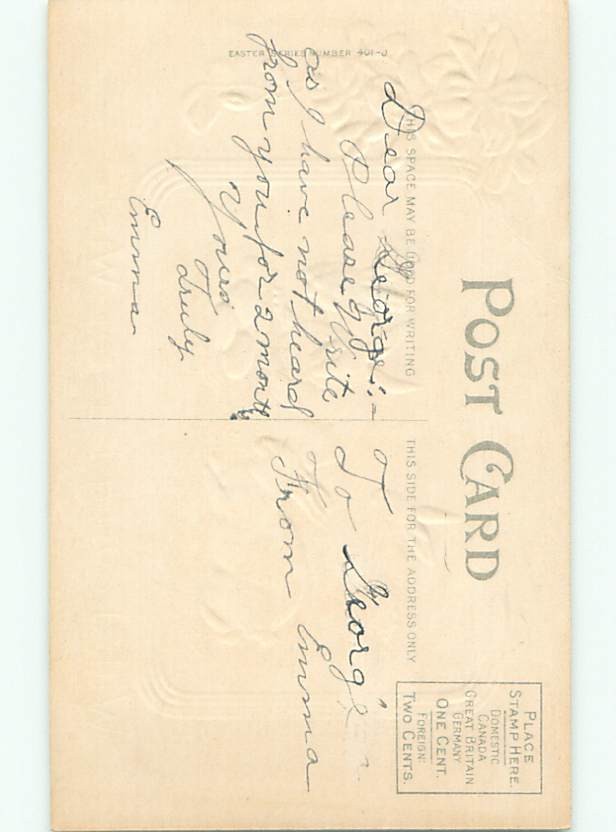 POST CARD
EASTER SERIES NUMBER 401-J
THIS SPACE MAY BE USED FOR WRITING
THIS SIDE FOR THE ADDRESS ONLY
PLACE
STAMP HERE.
DOMESTIC
CANADA
GREAT BRITAIN
GERMANY
ONE CENT.
FOREIGN:
TWO CENTS.
Dear George:-
Please Write
as I have not heard
from you for 2 month
Yours
Truly
Emma
To George
From Emma